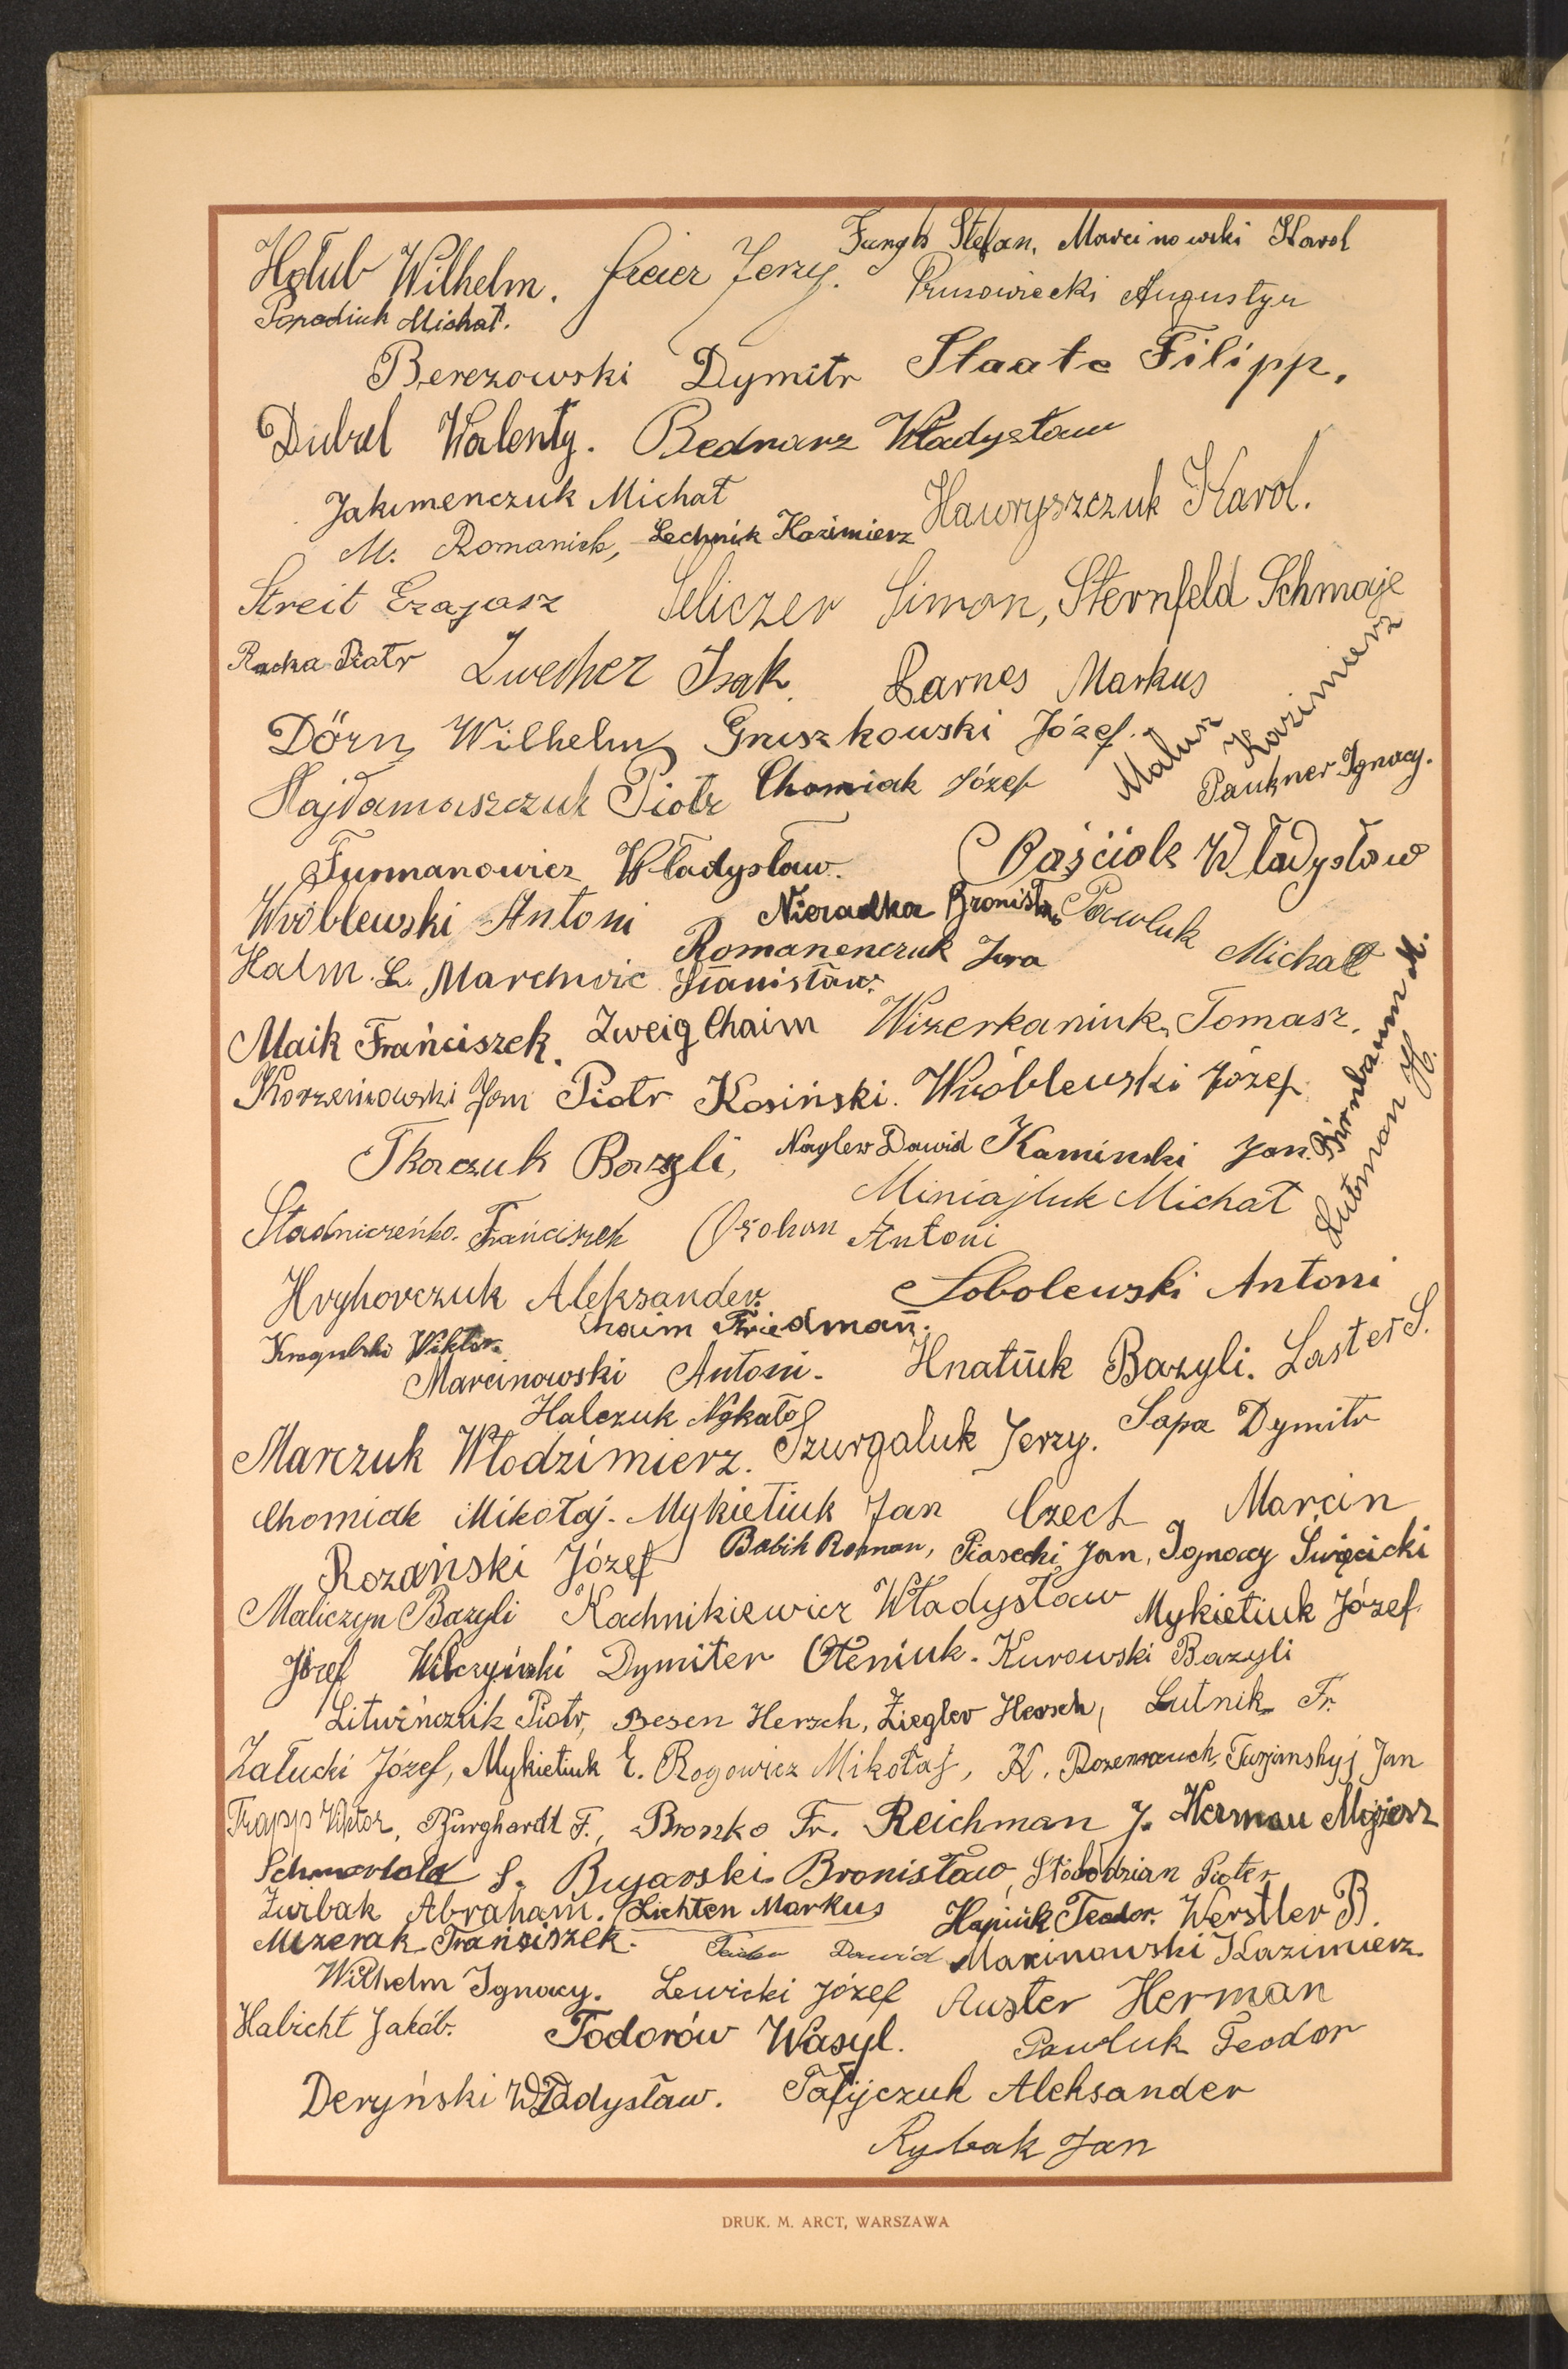 Hołub Wilhelm. Freier Jerzy. Stefan, Marcinowski Karol
Popadiuk Michał. Prusowiecki Augustyn
Berezowski Dymitr Staate Filipp.
Dubel Walenty. Bednarz Władysław
Jakimenczuk Michał Hawryszczuk Karol.
M. Romanick, Lechnik Kazimierz
Streit Ezajasz Seliczer Simon, Sternfeld Schmaje
Racka Piotr Zwecher Isak Barnes Markus
Dörn Wilhelm Gruszkowski Józef. Malusz Kazimierz
Hajdamaszczuk Piotr Chomiak Józef Paukner Ignacy.
Furmanowicz Władysław. Paściak Władysław
Wróblewski Antoni Nieradka Bronisław Pawluk Michał
Halm L. Marchwic Stanisław. Romanenczuk Jura
Maik Franciszek. Zweig Chaim Wizerkaniuk Tomasz.
Korzeniowski Jan Piotr Kosiński. Wróblewski Józef.
Tkaczuk Bazyli, Nagler Dawid Kaminski Jan. Birnbaum M.
Miniajluk Michał Gutman H.
Stadniczeńko Franciszek Antoni
Hryhorczuk Aleksander. Sobolewski Antoni
Kragulski Wiktor Chaim Friedman.
Marcinowski Antoni. Hnatiuk Bazyli. Laster S.
Halczuk Mykato
Marczuk Włodzimierz. Szurgaluk Jerzy. Sapa Dymitr
Chomiak Mikołaj. Mykietiuk Jan Czech Marcin
Rozański Józef Babik Roman, Piasecki Jan, Ignacy Święcicki
Maliczyn Bazyli Kachnikiewicz Władysław Mykietiuk Józef.
Józef Wilczyński Dymiter Oleniuk. Kurowski Bazyli
Litwińczuk Piotr, Besen Hersch, Ziegler Hersch, Lutnik Fr.
Załucki Józef, Mykietiuk E. Rogowicz Mikołaj, K. Rozenrauch, Turjanskyj Jan
Trapp Wiktor, Burghardt F., Bronzko Fr. Reichman J. Herman Mojżesz
S. Bujarski Bronisław, Słobodzian Piotr
Żwirbak Abraham. Lichten Markus Hapiuk Teodor. Werstler B.
Mizerak Franciszek. Dawid Marinowski Kazimierz.
Wilhelm Ignacy. Lewicki Józef Auster Herman
Habicht Jakób. Todorów Wasyl. Pawluk Teodor
Deryński Władysław. Tafijczuk Aleksander
Rybak Jan
DRUK. M. ARCT, WARSZAWA